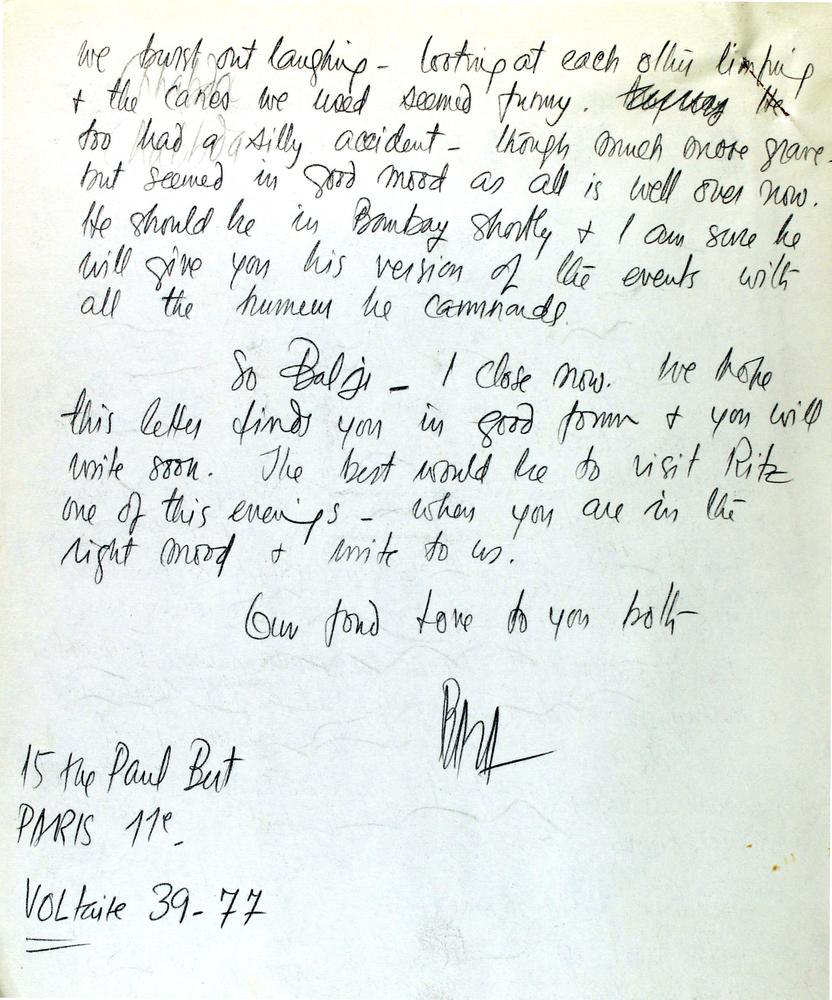 we burst out laughing - looking at each other limping
+ the canes we used seemed funny. He
too had a silly accident - though much more grave -
but seemed in good mood as all is well over now.
He should be in Bombay shortly + I am sure he
will give you his version of the events with
all the humour he commands.
So Bal ji - I close now. We hope
this letter finds you in good form + you will
write soon. The best would be to visit Ritz
one of this evenings - when you are in the
right mood + write to us.
Our fond love to you both
15 rue Paul Bert
PARIS 11e.
VOLtaire 39-77